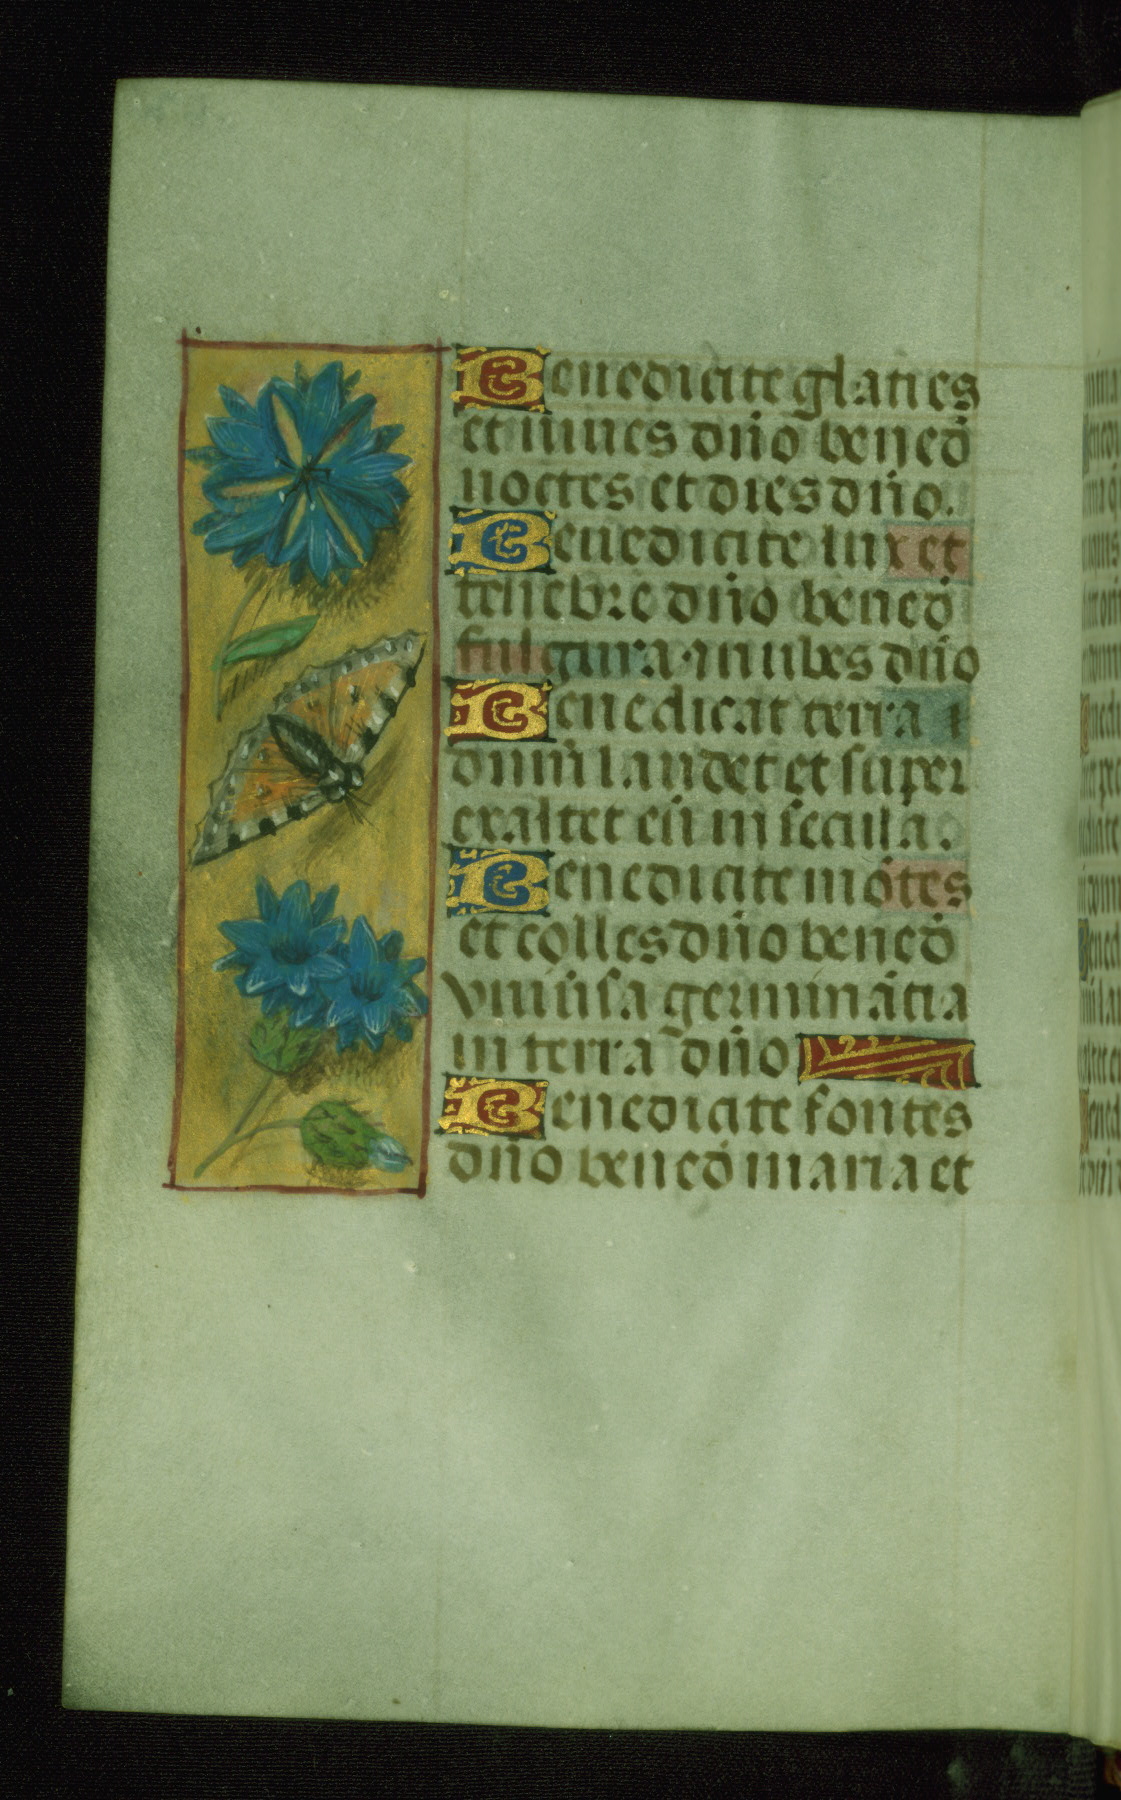 Benedicite glaties
et niues dño bened̄
noctes et dies dño.
Benedicite lux et
tenebre dño bened̄
fulgura & nubes dño
Benedicat terra
dñm laudet et super
exaltet eū in secula.
Benedicite mōtes
et colles dño bened̄
vniūsa germinātia
in terra dño
Benedicite fontes
dño bened̄ maria et